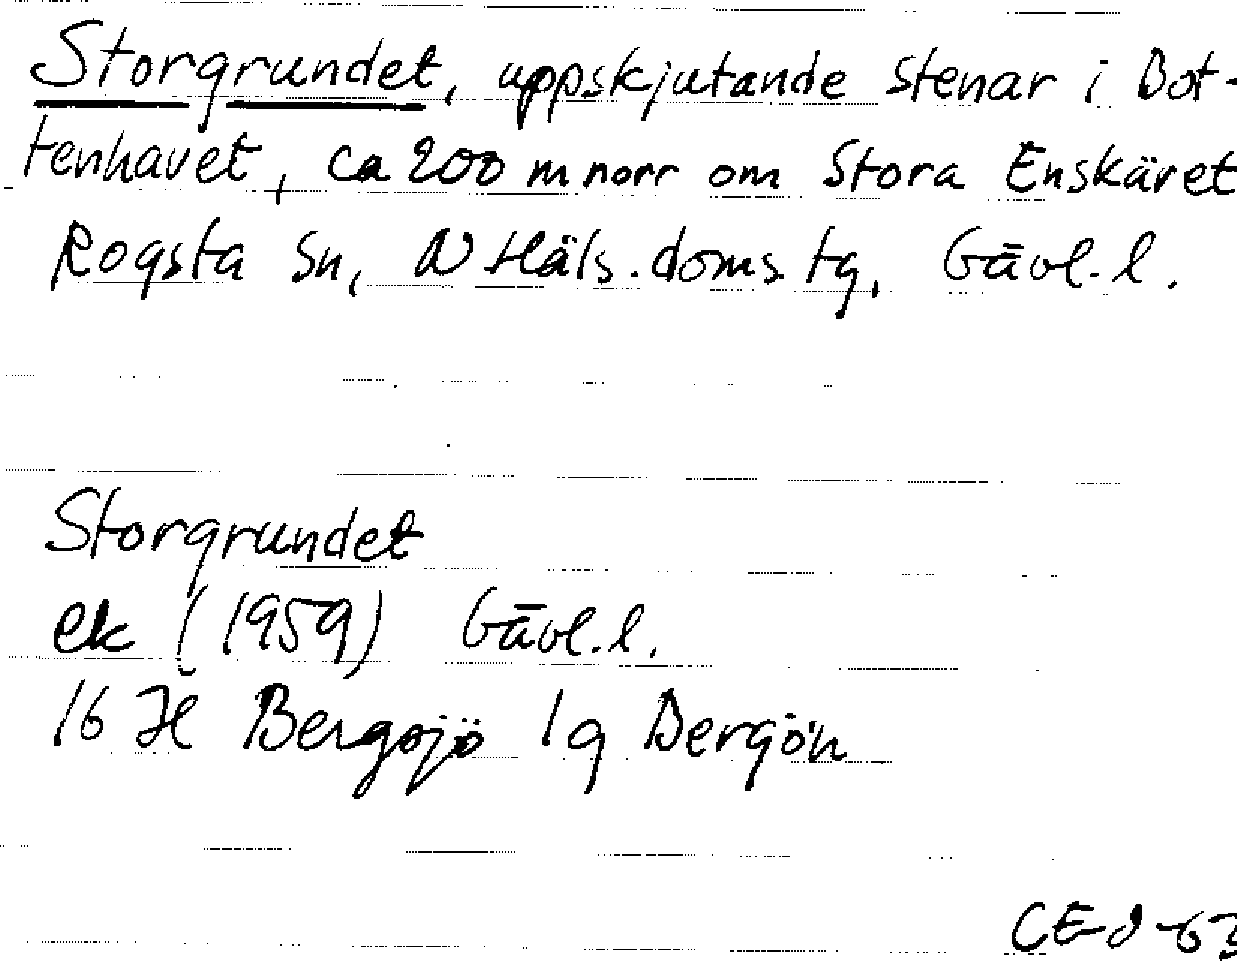 Storgrundet, uppskjutande stenar i Bot-
tenhavet, ca 200 m norr om Stora Enskäret
Rogsta sn, N Häls. doms tg, Gävl. l.
Storgrundet
ek (1959) Gävl. l.
16 H Bergsjö 1 g Bergön